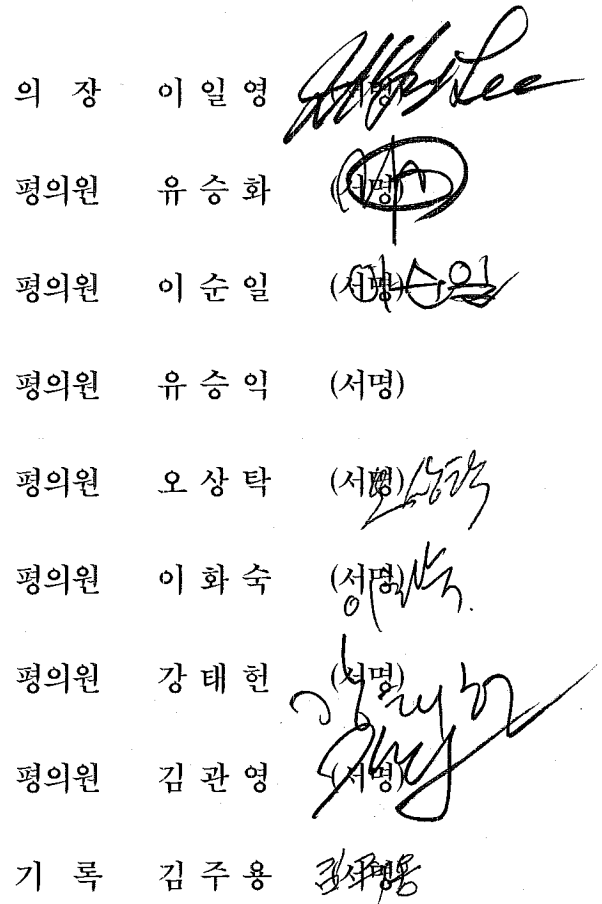 의 장 이 일 영 (서명) Lee
평의원 유 승 화 (서명)
평의원 이 순 일 (서명) 이순일
평의원 유 승 익 (서명)
평의원 오 상 탁 (서명) 오상탁
평의원 이 화 숙 (서명)
평의원 강 태 헌 (서명)
평의원 김 관 영 (서명)
기 록 김 주 용 (서명)